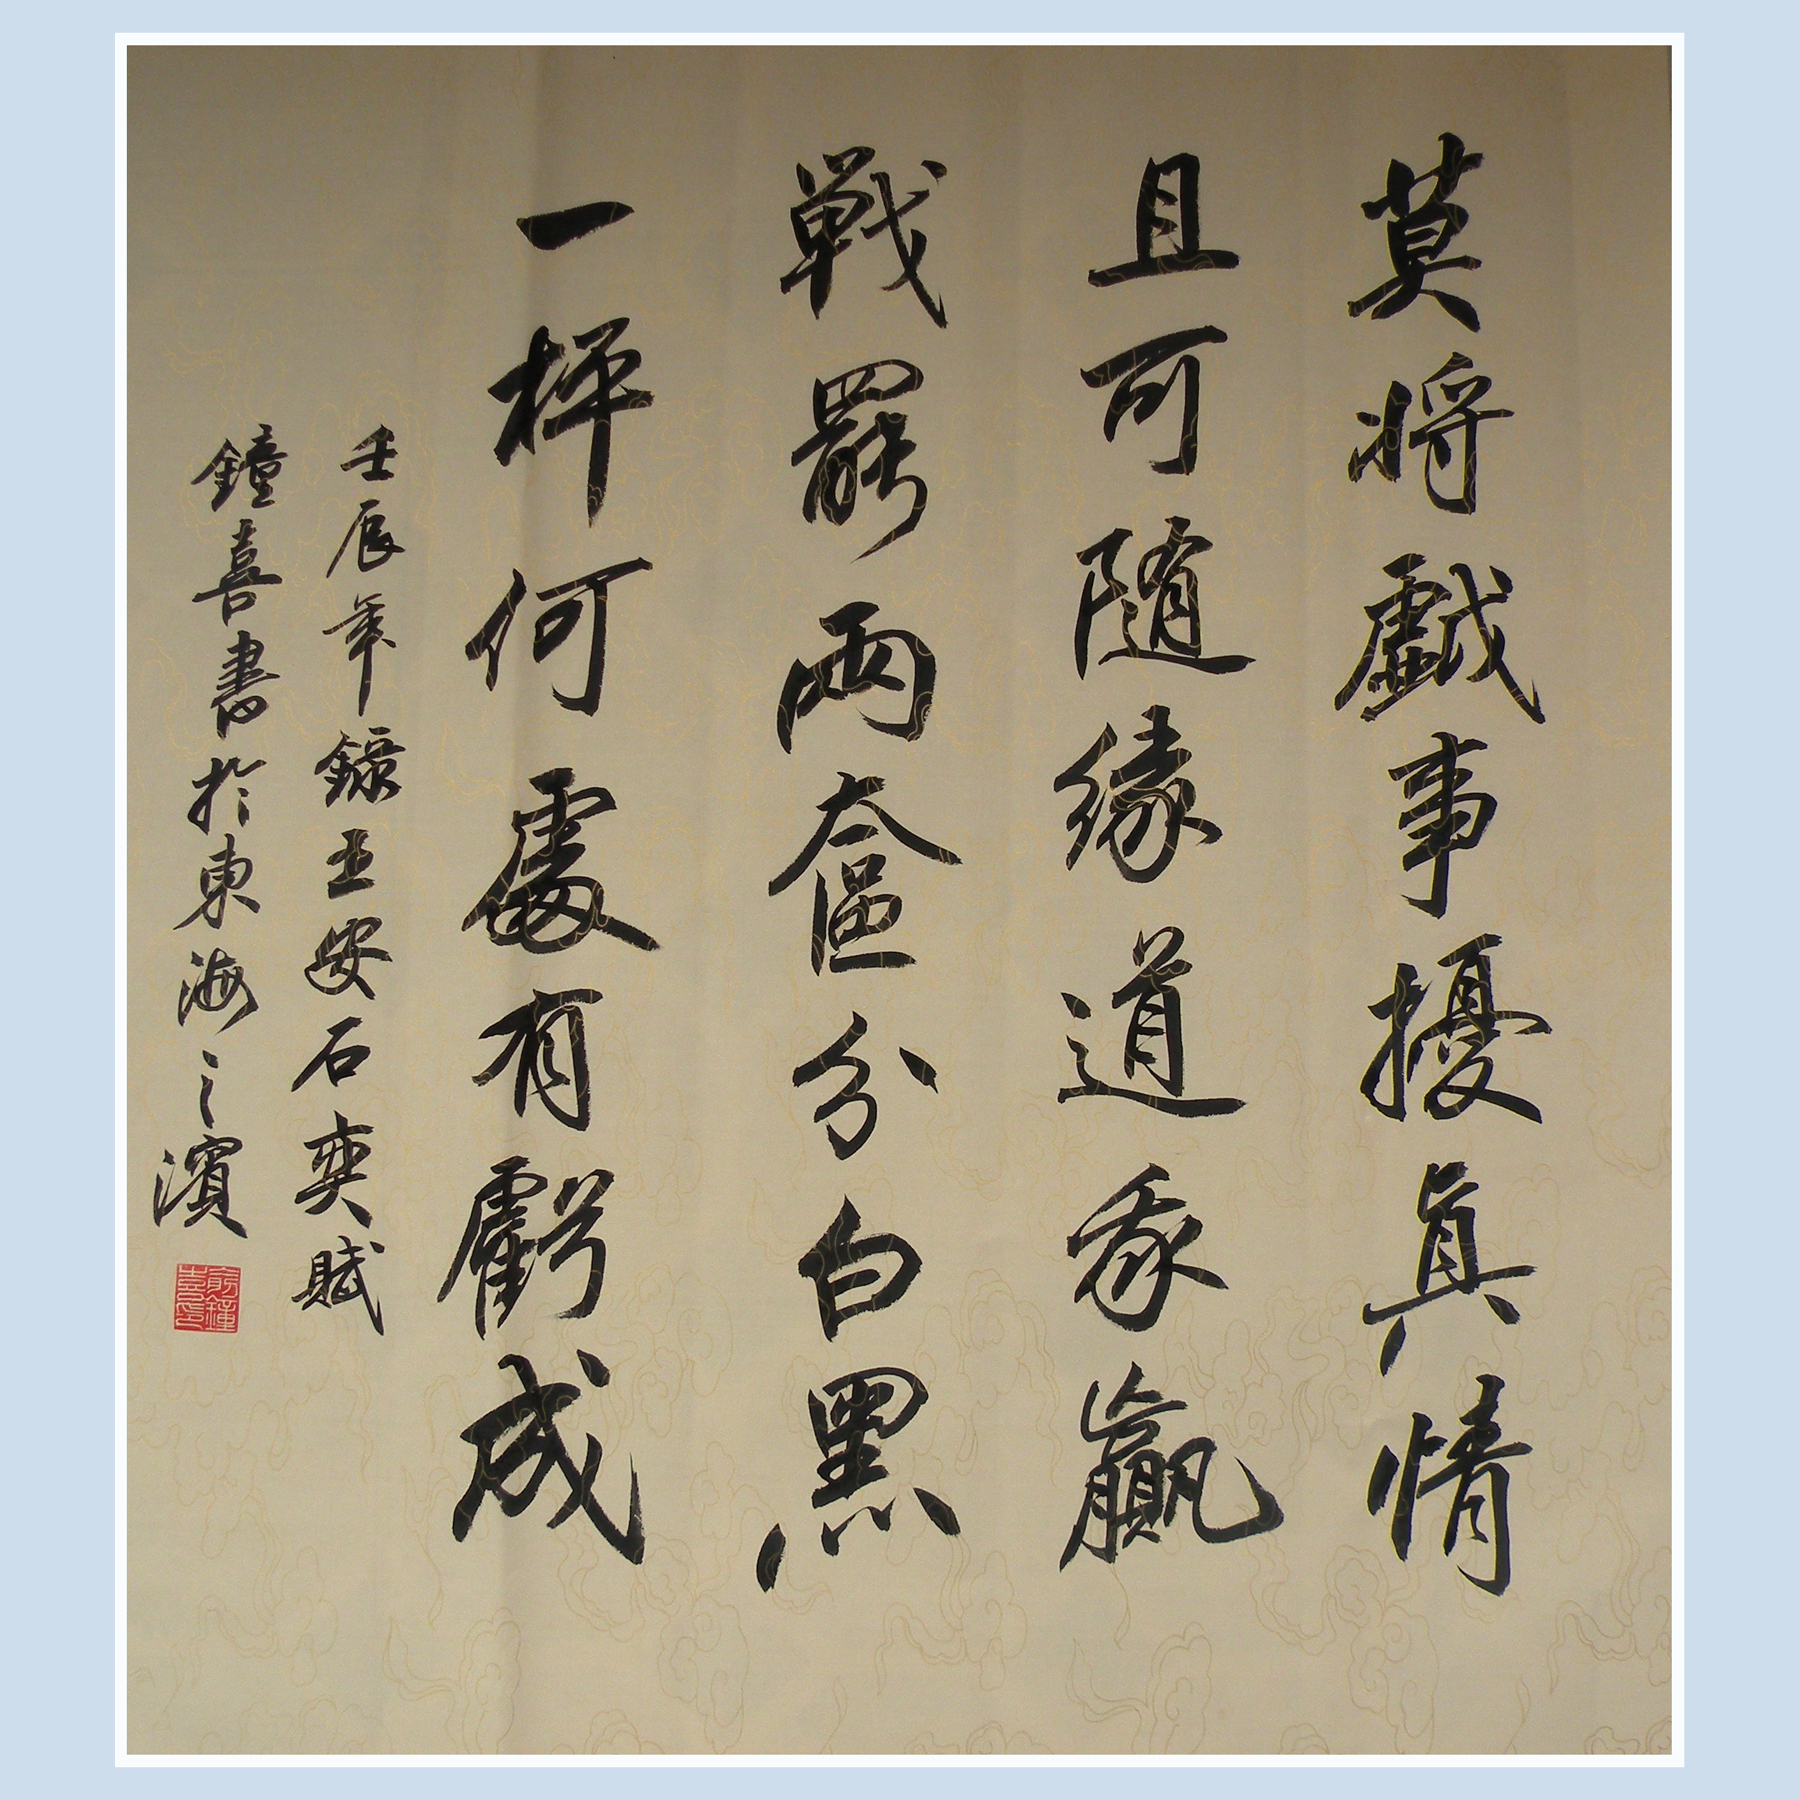 莫将戲事擾真情
且可随緣道我贏
戰罷兩奩分白黑
一枰何處有虧成
壬辰年錄王安石奕賦
鐘喜書於東海之濱